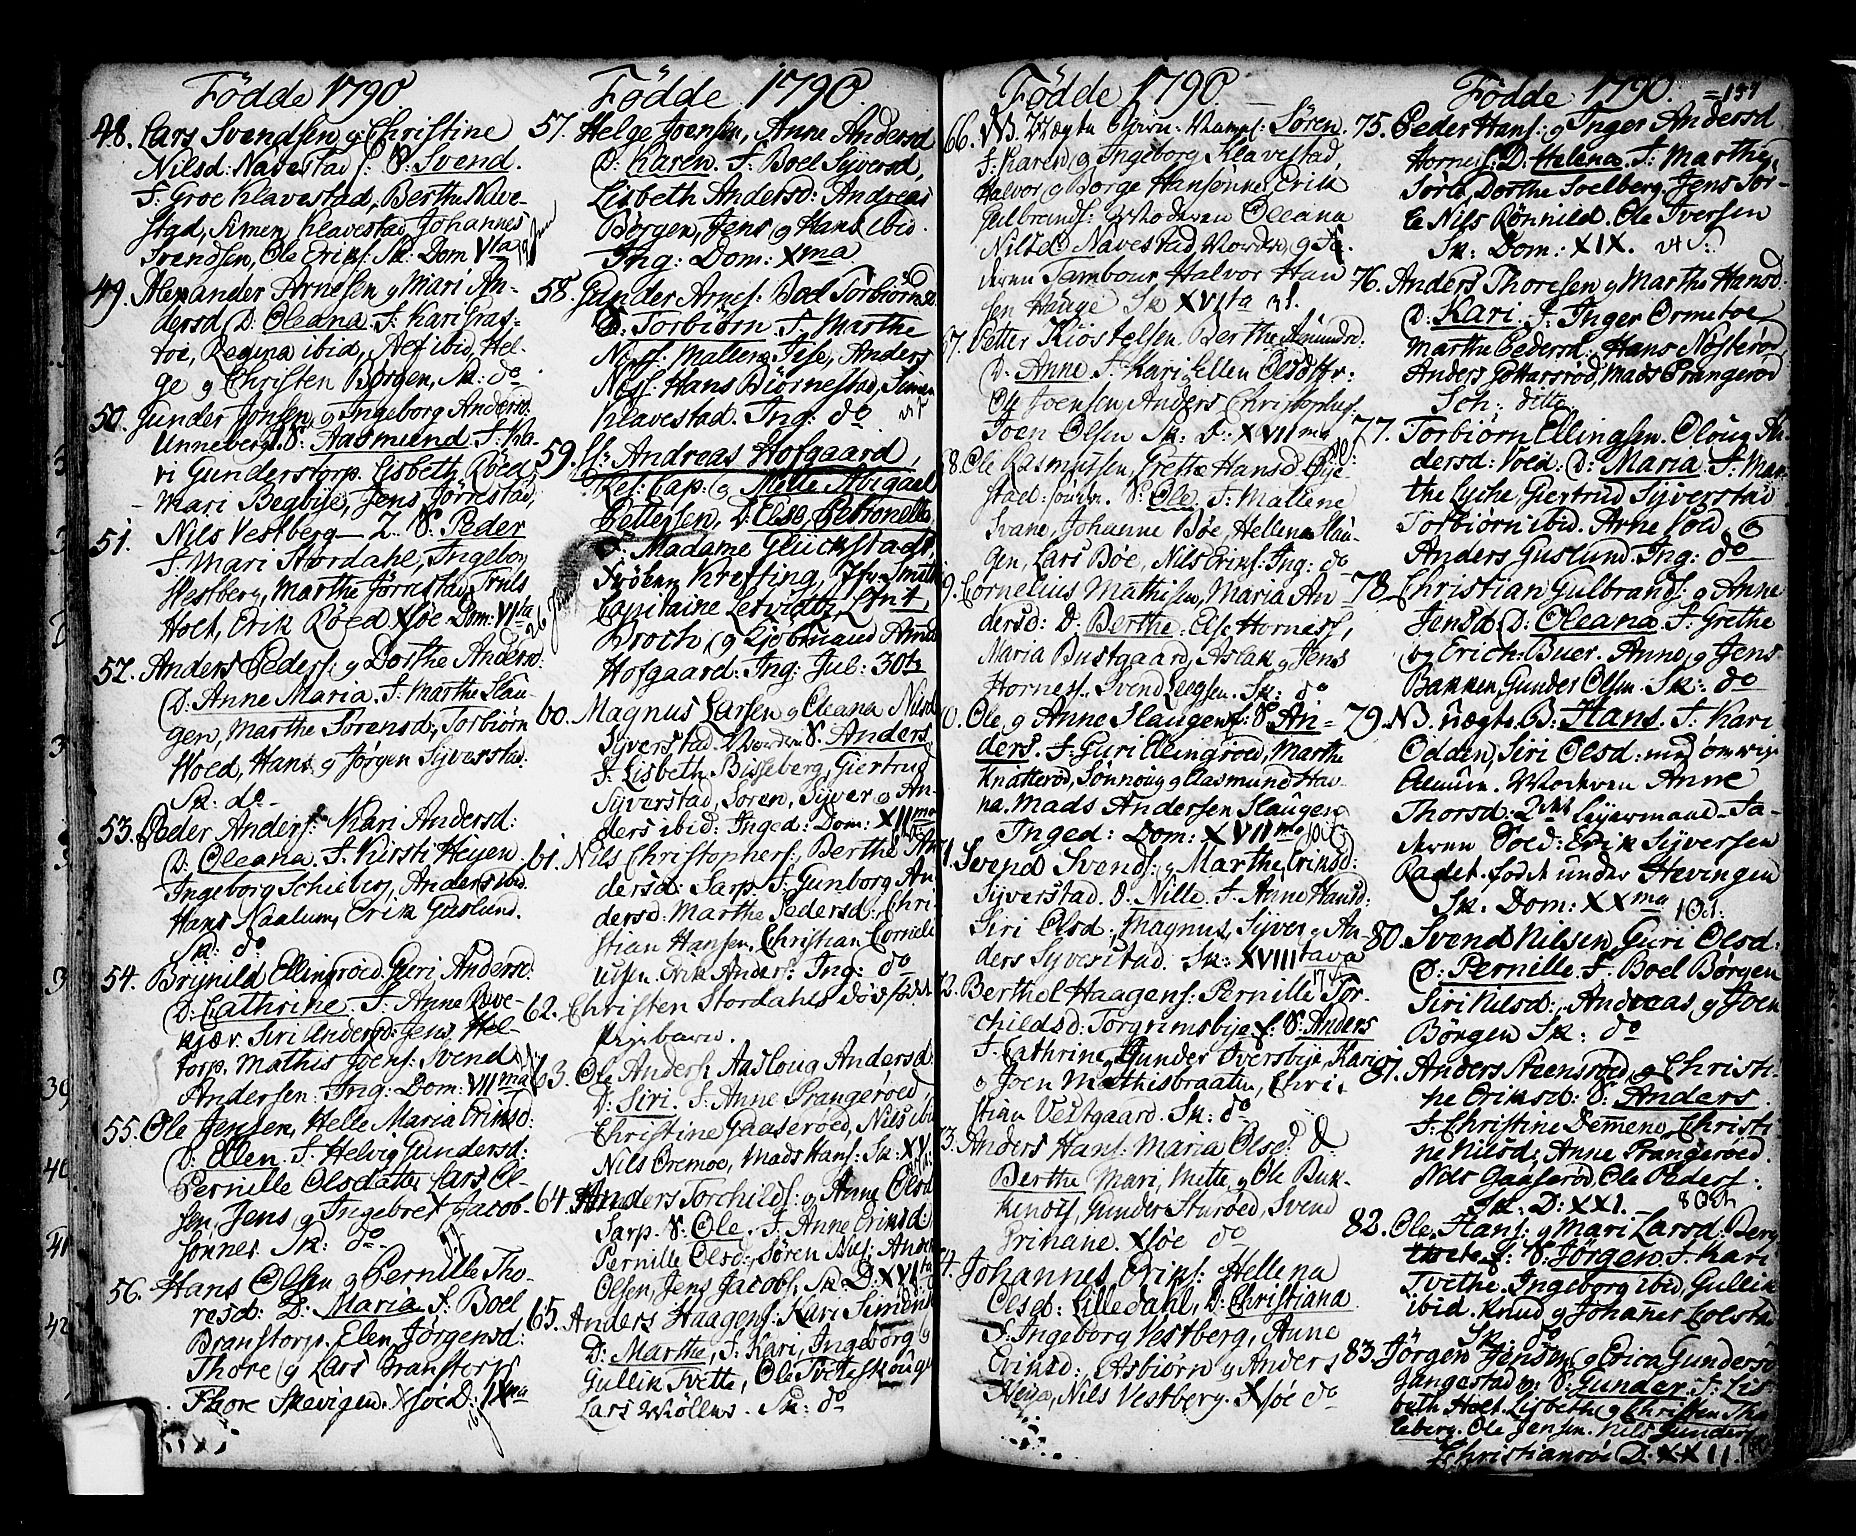 Födde 1790
48. Lars Svendsen, og Christine
Nilsd: Navestad f: S: Svend.
F: Groe Klavestad, Berthe Nave-
stad, Simen Klavestad, Johannes
Svendsen, Ole Eriks: Sk: Dom VIta
49. Alexander Arnesen og Mari An-
dersd, D: Oleana. F: Kari Gras-
toe, Regina ibid, ibid, Hel-
ge og Christen Børgen, Sk: do
50. Gunder Jonsen, og Ingeborg Andersd:
Unneberg. S: Aasmund. F: Ka-
ri Gunderstorp. Lisbeth Røed
Mari Begbye, Jens Jørnestad,
51. Nils Vestberg S. Peder
F: Mari Stordahl, Ingebor
Westberg, Marthe Jørnestad, Truls
Holt, Erik Røed Xsøe Dom: VIta
52. Anders Peders: og Dorthe Andersd:
D: Anne Maria. F: Marthe Slau-
gen, Marthe Sørensd, Torbiørn
Woed, Hans og Jørgen Syverstad.
Sk: do
53. Peder Anders: Kari Andersd:
D: Oleana. F: Kirsti Heyen
Ingeborg Schieberg, Anders ibid.
Hans Naalum, Erik Guslund.
Sk: do
54. Brynild Ellingrød. Guri Andersd:
D: Cathrine. F: Anne Reve-
kjær. Siri Andersd: Jens Hel-
torp. Mathis Joens: Svend
Andersen: Ing: Dom: VIIma
55. Ole Jensen, Helle Maria Eriksd:
D: Ellen. F: Helvig Gundersd:
Pernille Olsdatter Lars Ol-
sen, Jens og Ingebret Jacob-
sønner Sk: do
56. Hans Olsen og Pernille Tho-
resd: D: Maria F: Boel
Branstorp. Elen Jørgensd:
Thore og Lars Branstorp
Thore Skevigen. Xsøe D: IXma
Födde 1790.
57. Helge Joensen, Anne Andersd
D: Karen. F: Boel Syversd,
Lisbeth Andersd: Andreas
Børgen, Jens og Hans ibid.
Ing: Dom: Xma
58. Gunder Arnes: Bod Torbiørnsd
S: Torbiørn F: Marthe
Mallene Anders
Hans Biørnestad, Simen
Klavestad. Ing: do
59. Hr Andreas Hofgaard,
Res: Cap: og Mette Abigael
Pettersen, D: Else Petronelle
F: Madame Glückstadt,
Frøken Krefting, Jfr: Smith
Capitaine
Broch og Amund
Hofgaard: Ing: Jul: 30te
60. Magnus Larsen og Oleana Nilsd
Syverstad. S: Anders
F: Lisbeth Bisseberg, Giertrug
Syverstad, Soren, Syver og An-
ders ibid: Inged: Dom: XIIma
61. Nils Christophers: Berthe An-
dersd: Sarp. F: Gunborg An-
dersd: Marthe Pedersd: Chri-
stian Hansen. Christian Corneli
usen. Erik Anders: Ing: do
62. Christen Stordahls dødfødde
Pigebarn.
63. Ole Anders: Aasloug Andersd:
D: Siri. F: Anne Prangerøed,
Christine Gaaserøed, Nils ibid
Nils Oremoe, Mads Hans: Sk: XV
64. Anders Torchilds: og Anne Olsd
Sarp. S: Ole. F: Anne Eriksd
Pernille Olsd: Søren Nils: Anders
Olsen, Jens Jacobs: Sk: D: XVIta
65. Anders Haagens: Kari Simensd
D: Marthe, F: Kari, Ingeborg og
Gullik Tvette, Ole Tveteskougen
Lars Møllers. Sk: do
Födde 1790.
66. NB. Uægte Søren.
F: Karen og Ingeborg Klavestad,
Halvor og Borge Hansønner, Erik
Gulbrands: Moderen Oleana
Nilsd Navestad og Fa-
deren Tambour Halvor Han
sen Hauge Sk XVIta
67. Petter Kiostelsen. Berthe Amundsd.
D: Anne F: Kari Ellen Olsdttr:
Joensen, Anders Christophers:
Joen Olsen Sk: D: XVIIma
68. Ole Rasmussen, Grethe Hansd
S: Ole. F: Mallene
Svane, Johanne Bøe, Hellene Slau-
gen, Lars Bøe, Nils Eriks: Ing: do
69. Cornelius Mathisen, Maria An-
dersd: D: Berthe. Else Hornes,
Maria Bustgaard, Aslak og Jens
Hornes. Svend Sk: do
70. Ole og Anne Slaugen f: S: An-
ders. F: Guri Ellingrød, Marthe
Knatterød, Sønnoug og Aasmund Hau-
na. Mads Andersen Slaugen
Inged: Dom: XVIIma
71. Svend Svends: og Marthe Eriksd:
Syverstad. D: Nille. F: Anne Hansd:
Siri Olsd: Magnus, Syver og An-
ders Syverstad. Sk: XVIIItava
72. Berthel Haagens: Pernille Tor-
childsd: Torgrimsbye f: S: Anders
F: Cathrine, Gunder Iversbye, Kari
og Joen Mathisbraaten, Chri-
stian Vestgaard. Sk: do
73. Anders Hans: Maria Olsd: D:
Berthe Mari, Mette, og Ole Buk-
kenols, Gunder Sturød, Svend
Grihane. Xsøe do
74. Johannes Eriks: Hellena
Olsd: Lilledahl, D: Christiana
F: Ingeborg Vestberg, Anne
Eriksd: Asbiørn og Anders
Heye, Nils Vestberg. Xsøe do
Födde 1790. =157
75. Peder Hans: og Inger Andersd
Hornes: D: Helena. F: Marthe
Torle, Dorthe Soelberg. Jens Tor-
le Nils Rønnild. Ole Iversen
Sk: Dom: XIX.
76. Anders Thoresen og Marthe Hansd:
D: Kari. F: Inger Ormetoe
Marthe Pedersd: Hans Nøsterød
Anders Gottarsrød, Mads Prangerød
Sch: ditto
77. Torbiørn Ellingsen. Oloug An-
dersd: Voed: D: Maria. F: Mar-
the Lyche, Giertrud Syverstad
Torbiørn ibid. Arne Voed og
Anders Guslund. Ing: do
78. Christian Gulbrands: og Anne
Jensd D: Oleana. F: Grethe
og Erich: Buer. Anne og Jens
Bakken, Gunder Olsen. Sk: do
79. NB. uægte B: Hans. F: Kari
Odden, Siri Olsd:
Almue. Moderen Anne
Thorsd: 2det Leyermaal. Fa-
deren Soed: Erik Syversen
Radet. født under Hevingen
Sk. Dom: XXma
80. Svend Nilsen Guri Olsd:
D: Pernille. F: Boel Børgen
Siri Nilsd: Andreas og Joen
Børgen Sk: do
81. Anders Steensrød, og Christi-
ne Eriksd: S: Anders.
F: Christine Demene, Christi-
ne Nilsd: Anne Prangerøed.
Nils Gaaserød, Ole Peders:
Sk: D: XXI.
82. Ole Hans: og Mari Larsd: Berg
f: S: Jørgen. F: Kari
Tvethe. Ingeborg ibid, Gullik
ibid. Knud og Johannes
Sk: do
83. Jørgen Jensen og Erica Gundersd
Gangestad S: Gunder. F: Lis-
beth Holt. Lisbeth og Christen
Ole Jensen. Nils Gunders:
Christiansrøe D: XXII